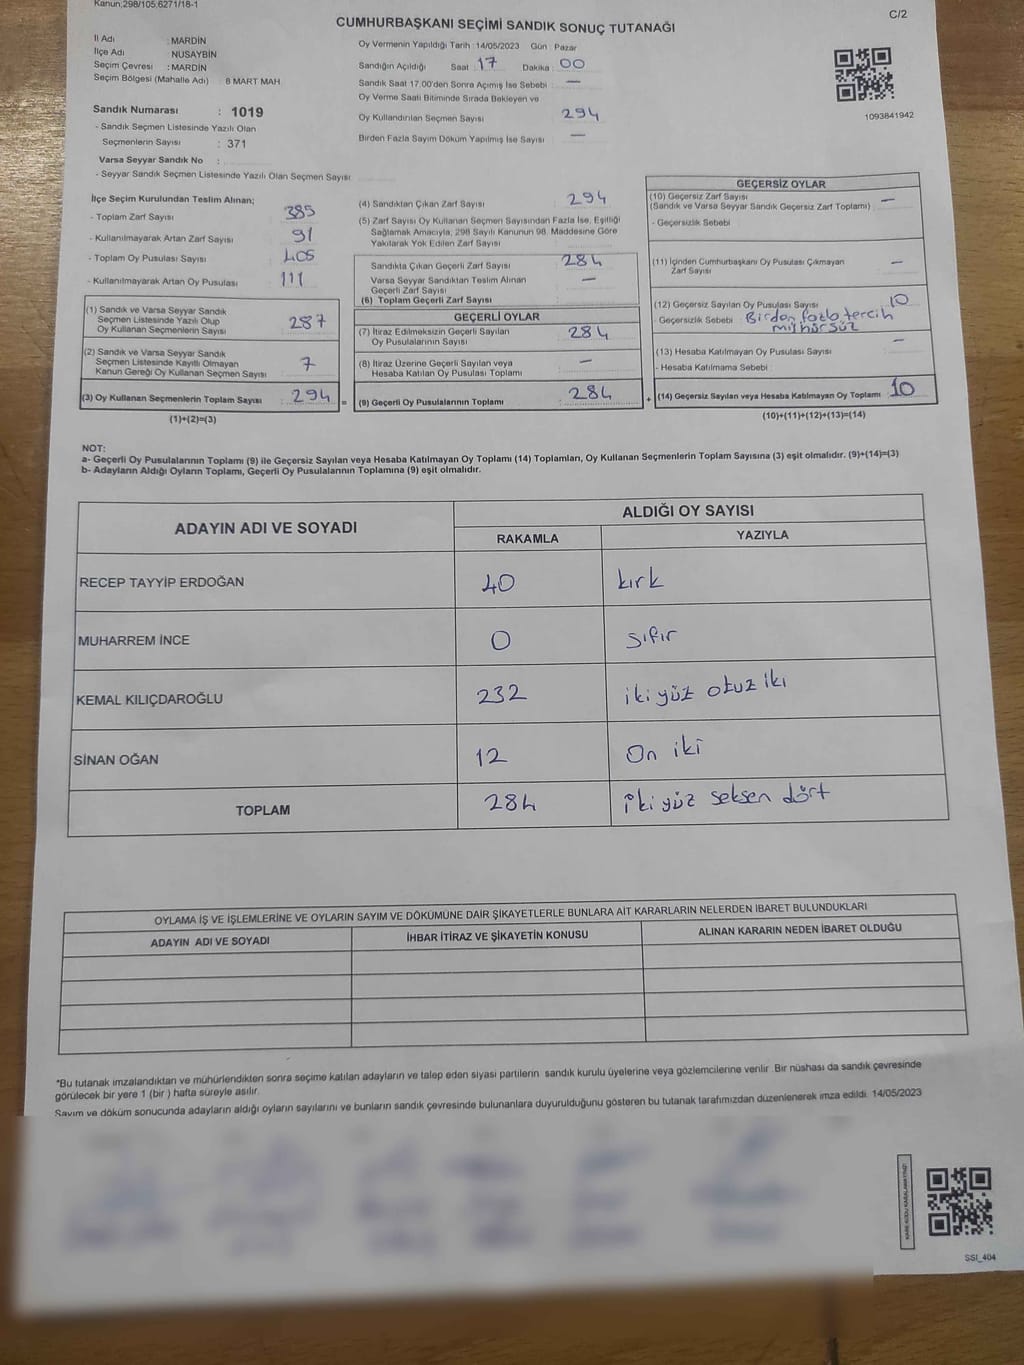 Kanun:298/105,6271/18-1
C/2
CUMHURBAŞKANI SEÇİMİ SANDIK SONUÇ TUTANAĞI
İl Adı : MARDİN
İlçe Adı : NUSAYBİN
Seçim Çevresi : MARDİN
Seçim Bölgesi (Mahalle Adı) : 8 MART MAH.
Sandık Numarası : 1019
- Sandık Seçmen Listesinde Yazılı Olan
Seçmenlerin Sayısı : 371
Varsa Seyyar Sandık No :
- Seyyar Sandık Seçmen Listesinde Yazılı Olan Seçmen Sayısı
Oy Vermenin Yapıldığı Tarih : 14/05/2023 Gün : Pazar
Sandığın Açıldığı Saat : 17 Dakika : 00
Sandık Saat 17.00'den Sonra Açımış İse Sebebi : —
Oy Verme Saati Bitiminde Sırada Bekleyen ve
Oy Kullandırılan Seçmen Sayısı : 294
Birden Fazla Sayım Döküm Yapılmış İse Sayısı : —
1093841942
İlçe Seçim Kurulundan Teslim Alınan;
- Toplam Zarf Sayısı : 385
- Kullanılmayarak Artan Zarf Sayısı : 91
- Toplam Oy Pusulası Sayısı : 405
- Kullanılmayarak Artan Oy Pusulası : 111
(1) Sandık ve Varsa Seyyar Sandık
Seçmen Listesinde Yazılı Olup
Oy Kullanan Seçmenlerin Sayısı : 287
(2) Sandık ve Varsa Seyyar Sandık
Seçmen Listesinde Kayıtlı Olmayan
Kanun Gereği Oy Kullanan Seçmen Sayısı : 7
(3) Oy Kullanan Seçmenlerin Toplam Sayısı : 294 =
(1)+(2)=(3)
(4) Sandıktan Çıkan Zarf Sayısı : 294
(5) Zarf Sayısı Oy Kullanan Seçmen Sayısından Fazla İse, Eşitliği
Sağlamak Amacıyla, 298 Sayılı Kanunun 98. Maddesine Göre
Yakılarak Yok Edilen Zarf Sayısı
Sandıkta Çıkan Geçerli Zarf Sayısı : 284
Varsa Seyyar Sandıktan Teslim Alınan
Geçerli Zarf Sayısı : —
(6) Toplam Geçerli Zarf Sayısı :
GEÇERLİ OYLAR
(7) İtiraz Edilmeksizin Geçerli Sayılan
Oy Pusulalarının Sayısı : 284
(8) İtiraz Üzerine Geçerli Sayılan veya
Hesaba Katılan Oy Pusulası Toplamı : —
(9) Geçerli Oy Pusulalarının Toplamı : 284 +
GEÇERSİZ OYLAR
(10) Geçersiz Zarf Sayısı : —
(Sandık ve Varsa Seyyar Sandık Geçersiz Zarf Toplamı)
- Geçersizlik Sebebi :
(11) İçinden Cumhurbaşkanı Oy Pusulası Çıkmayan
Zarf Sayısı : —
(12) Geçersiz Sayılan Oy Pusulası Sayısı : 10
- Geçersizlik Sebebi : Birden fazla tercih
mühürsüz
(13) Hesaba Katılmayan Oy Pusulası Sayısı : —
- Hesaba Katılmama Sebebi :
(14) Geçersiz Sayılan veya Hesaba Katılmayan Oy Toplamı : 10
(10)+(11)+(12)+(13)=(14)
NOT:
a- Geçerli Oy Pusulalarının Toplamı (9) ile Geçersiz Sayılan veya Hesaba Katılmayan Oy Toplamı (14) Toplamları, Oy Kullanan Seçmenlerin Toplam Sayısına (3) eşit olmalıdır. (9)+(14)=(3)
b- Adayların Aldığı Oyların Toplamı, Geçerli Oy Pusulalarının Toplamına (9) eşit olmalıdır.
ADAYIN ADI VE SOYADI ALDIĞI OY SAYISI
RAKAMLA YAZIYLA
RECEP TAYYİP ERDOĞAN 40 kırk
MUHARREM İNCE 0 sıfır
KEMAL KILIÇDAROĞLU 232 iki yüz otuz iki
SİNAN OĞAN 12 On iki
TOPLAM 284 iki yüz seksen dört
OYLAMA İŞ VE İŞLEMLERİNE VE OYLARIN SAYIM VE DÖKÜMÜNE DAİR ŞİKAYETLERLE BUNLARA AİT KARARLARIN NELERDEN İBARET BULUNDUKLARI
ADAYIN ADI VE SOYADI İHBAR İTİRAZ VE ŞİKAYETİN KONUSU ALINAN KARARIN NEDEN İBARET OLDUĞU
*Bu tutanak imzalandıktan ve mühürlendikten sonra seçime katılan adayların ve talep eden siyasi partilerin sandık kurulu üyelerine veya gözlemcilerine verilir. Bir nüshası da sandık çevresinde
görülecek bir yere 1 (bir) hafta süreyle asılır.
Sayım ve döküm sonucunda adayların aldığı oyların sayılarını ve bunların sandık çevresinde bulunanlara duyurulduğunu gösteren bu tutanak tarafımızdan düzenlenerek imza edildi. 14/05/2023
KARE KODU KARALAMAYINIZ!
SSI_404